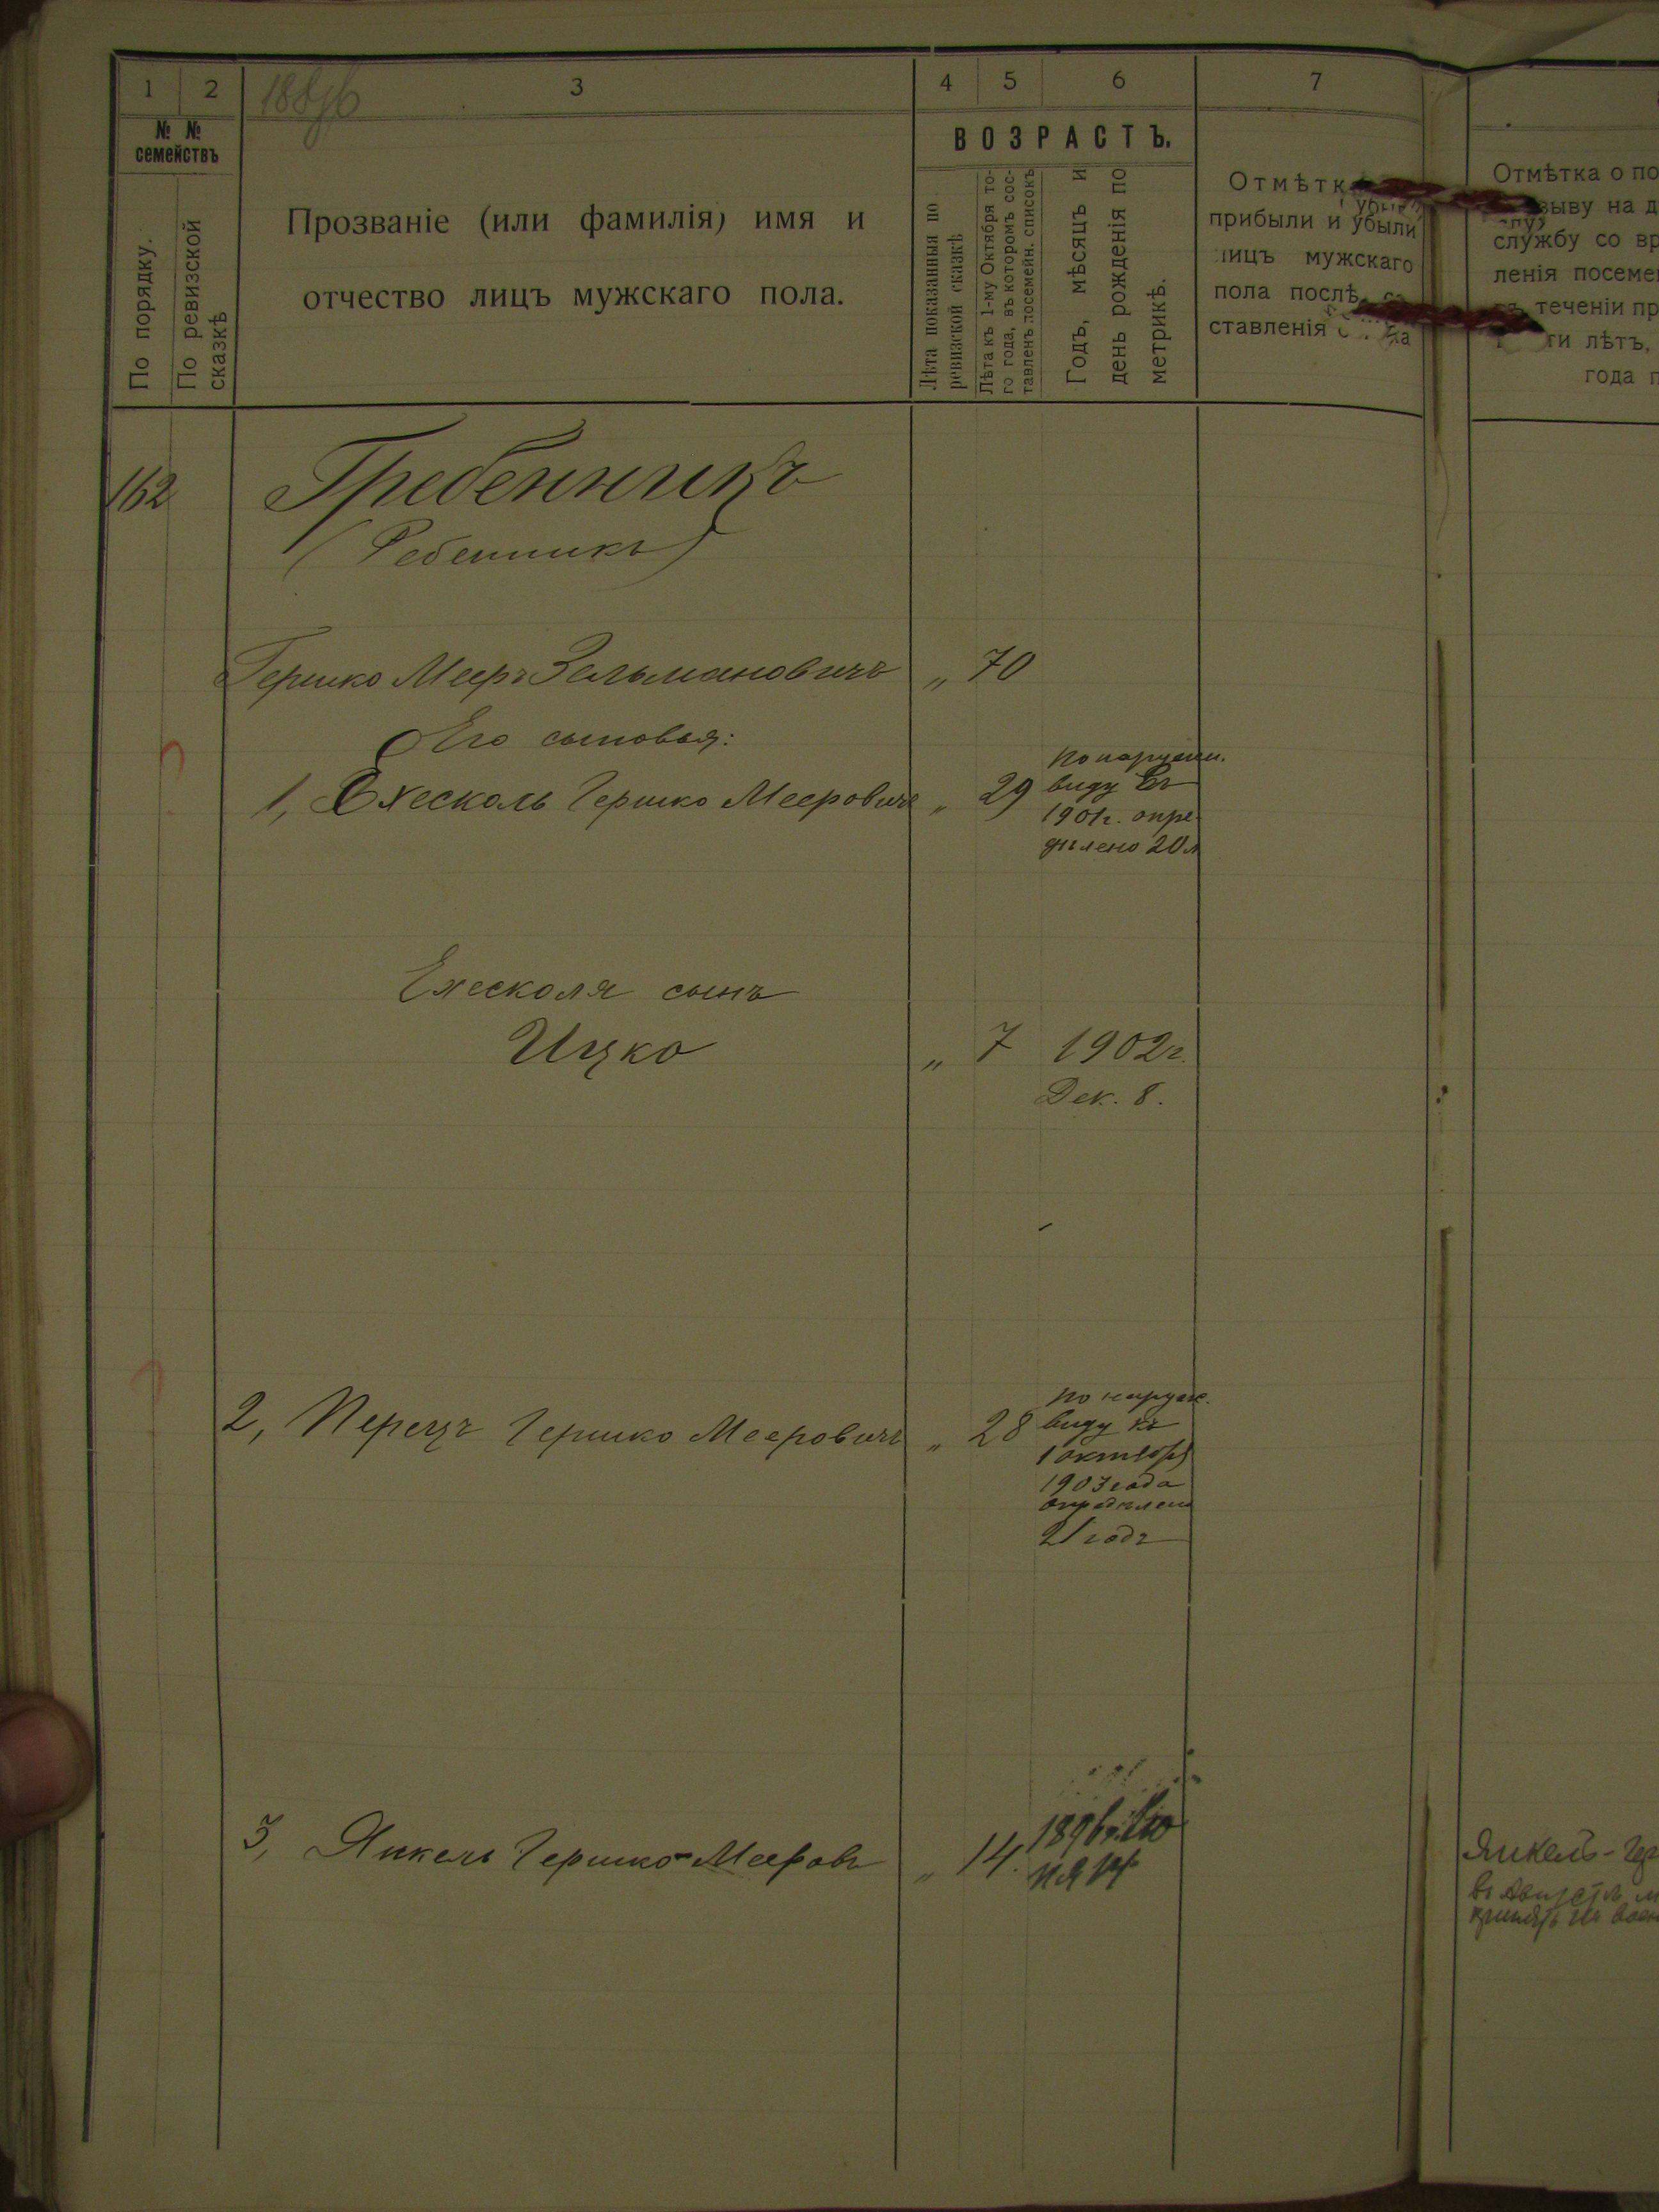 1 2 3 4 5 6 7
№ № семействъ
По порядку.
По ревизской сказкѣ
Прозваніе (или фамилія) имя и
отчество лицъ мужскаго пола.
ВОЗРАСТЪ.
Лѣта показанныя по
ревизской сказкѣ
Лѣта къ 1-му Октября то-
го года, въ которомъ сос-
тавленъ посемейн. списокъ
Годъ, мѣсяцъ и
день рожденія по
метрикѣ.
Отмѣтк
прибыли и убыли
лицъ мужскаго
пола послѣ
ставленія
Отмѣтка о по
зыву на д
службу со вр
ленія посемей
теченіи пр
ти лѣтъ,
года п
162 Гребенникъ
(Ребенникъ)
Гершко Мееръ Зельмановичъ „ 70
Его сыновья:
1, Ехесколь Гершко Мееровичъ „ 29
по наружн.
виду въ
1901г. опре-
дѣлено 20 л
Ехесколя сынъ
Ицко „ 7 1902г.
Дек. 8.
2, Перецъ Гершко Мееровичъ „ 28
по наруж.
виду къ
1 октября
1903 года
опредѣлен
21 годъ
3, Янкель Гершко-Мееровъ „ 14. 1896г.
Янкель-Гер
въ Августѣ м
принятъ на воен